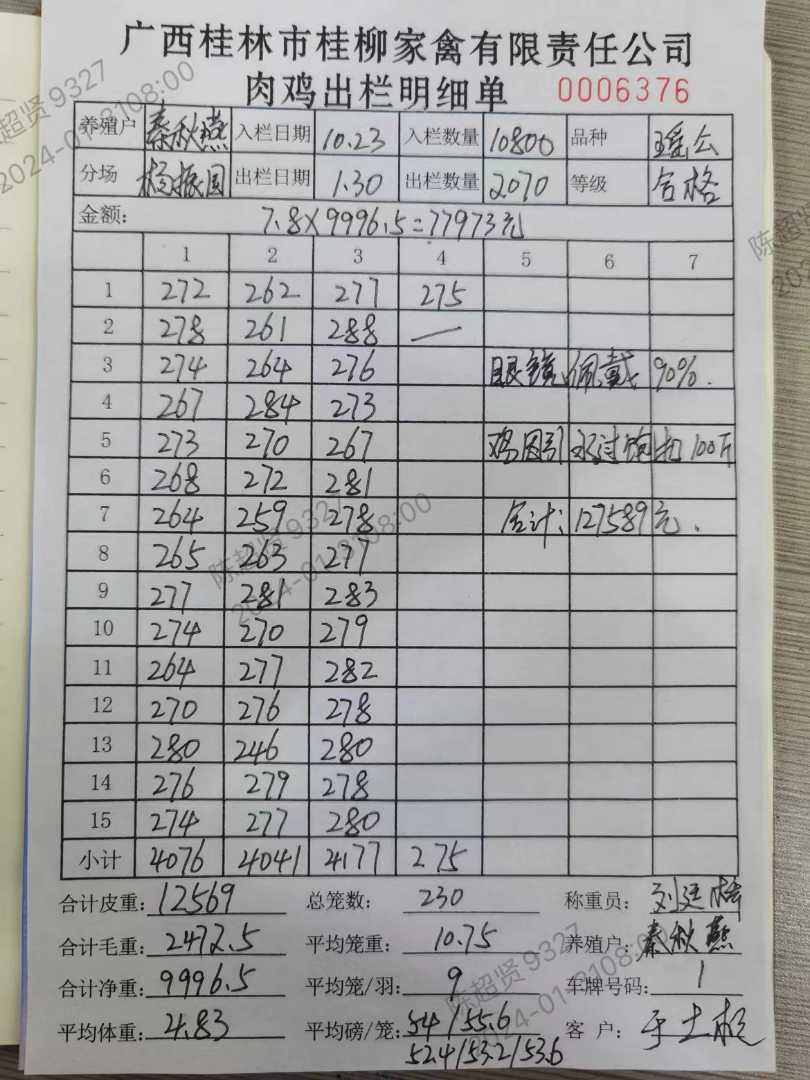 广西桂林市桂柳家禽有限责任公司
肉鸡出栏明细单 0006376
养殖户 秦秋燕 入栏日期 10.23 入栏数量 10800 品种 瑶公
分场 杨振国 出栏日期 1.30 出栏数量 2070 等级 合格
金额: 7.8×9996.5=77973元
1 2 3 4 5 6 7
1 272 262 277 275
2 278 261 288 —
3 274 264 276 眼镜佩戴90%.
4 267 284 273
5 273 270 267 鸡因引水过饱扣100斤
6 268 272 281
7 264 259 278 合计:127589元.
8 265 263 277
9 277 281 283
10 274 270 279
11 264 277 282
12 270 276 278
13 280 246 280
14 276 279 278
15 274 277 280
小计 4076 4041 4177 275
合计皮重: 12569 总笼数: 230 称重员:
合计毛重: 2472.5 平均笼重: 10.75 养殖户: 秦秋燕
合计净重: 9996.5 平均笼/羽: 9 车牌号码: 1
平均体重: 4.83 平均磅/笼: 54/55.6 客户:
52.4/53.2/53.6
陈超贤9327